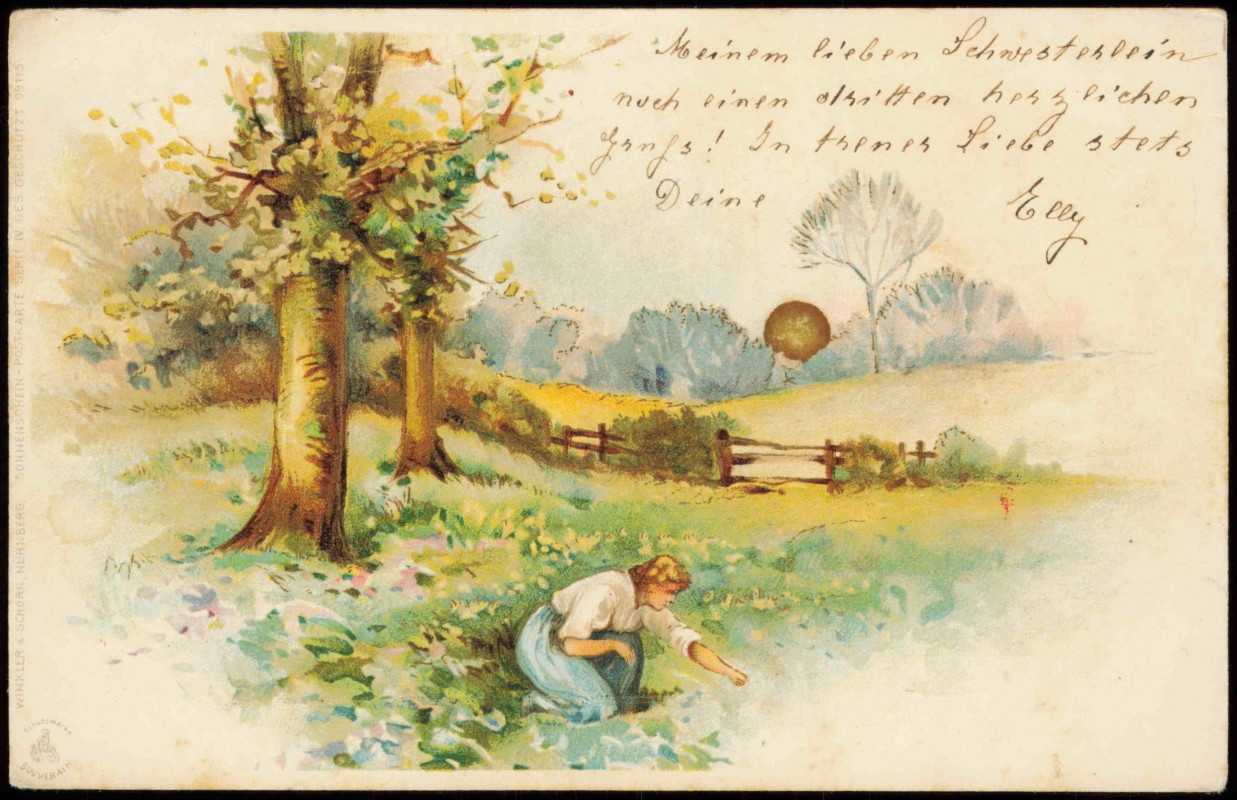 Meinem lieben Schwesterlein
noch einen dritten herzlichen
Gruß! In treuer Liebe stets
Deine Elly
WINKLER & SCHORN, NÜRNBERG. SONNENSCHEIN-POSTKARTE SERIE IV GES. GESCHÜTZT
Schutzmarke
SOUVERAIN